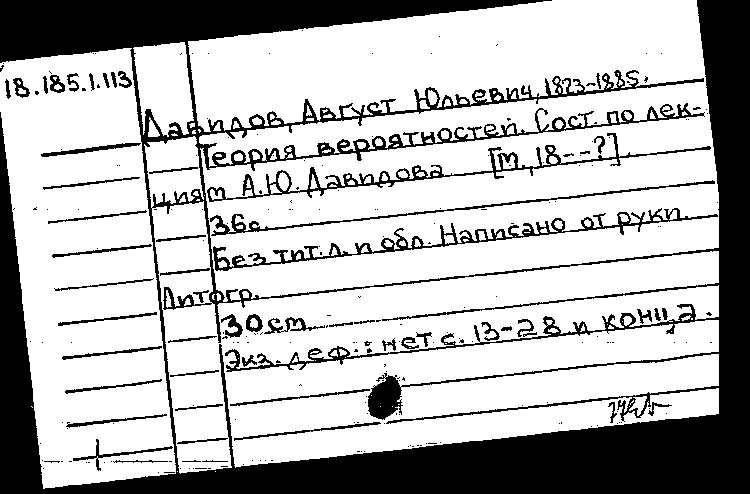 18.185.1.113
Давидов, Август Юльевич, 1823-1885.
Теория вероятностей. Сост. по лек-
циям А.Ю. Давидова [М., 18--?].
36с.
Без тит. л. и обл. Написано от руки.
Литогр.
30 см.
Экз. деф.: нет с. 13-28 и конца.